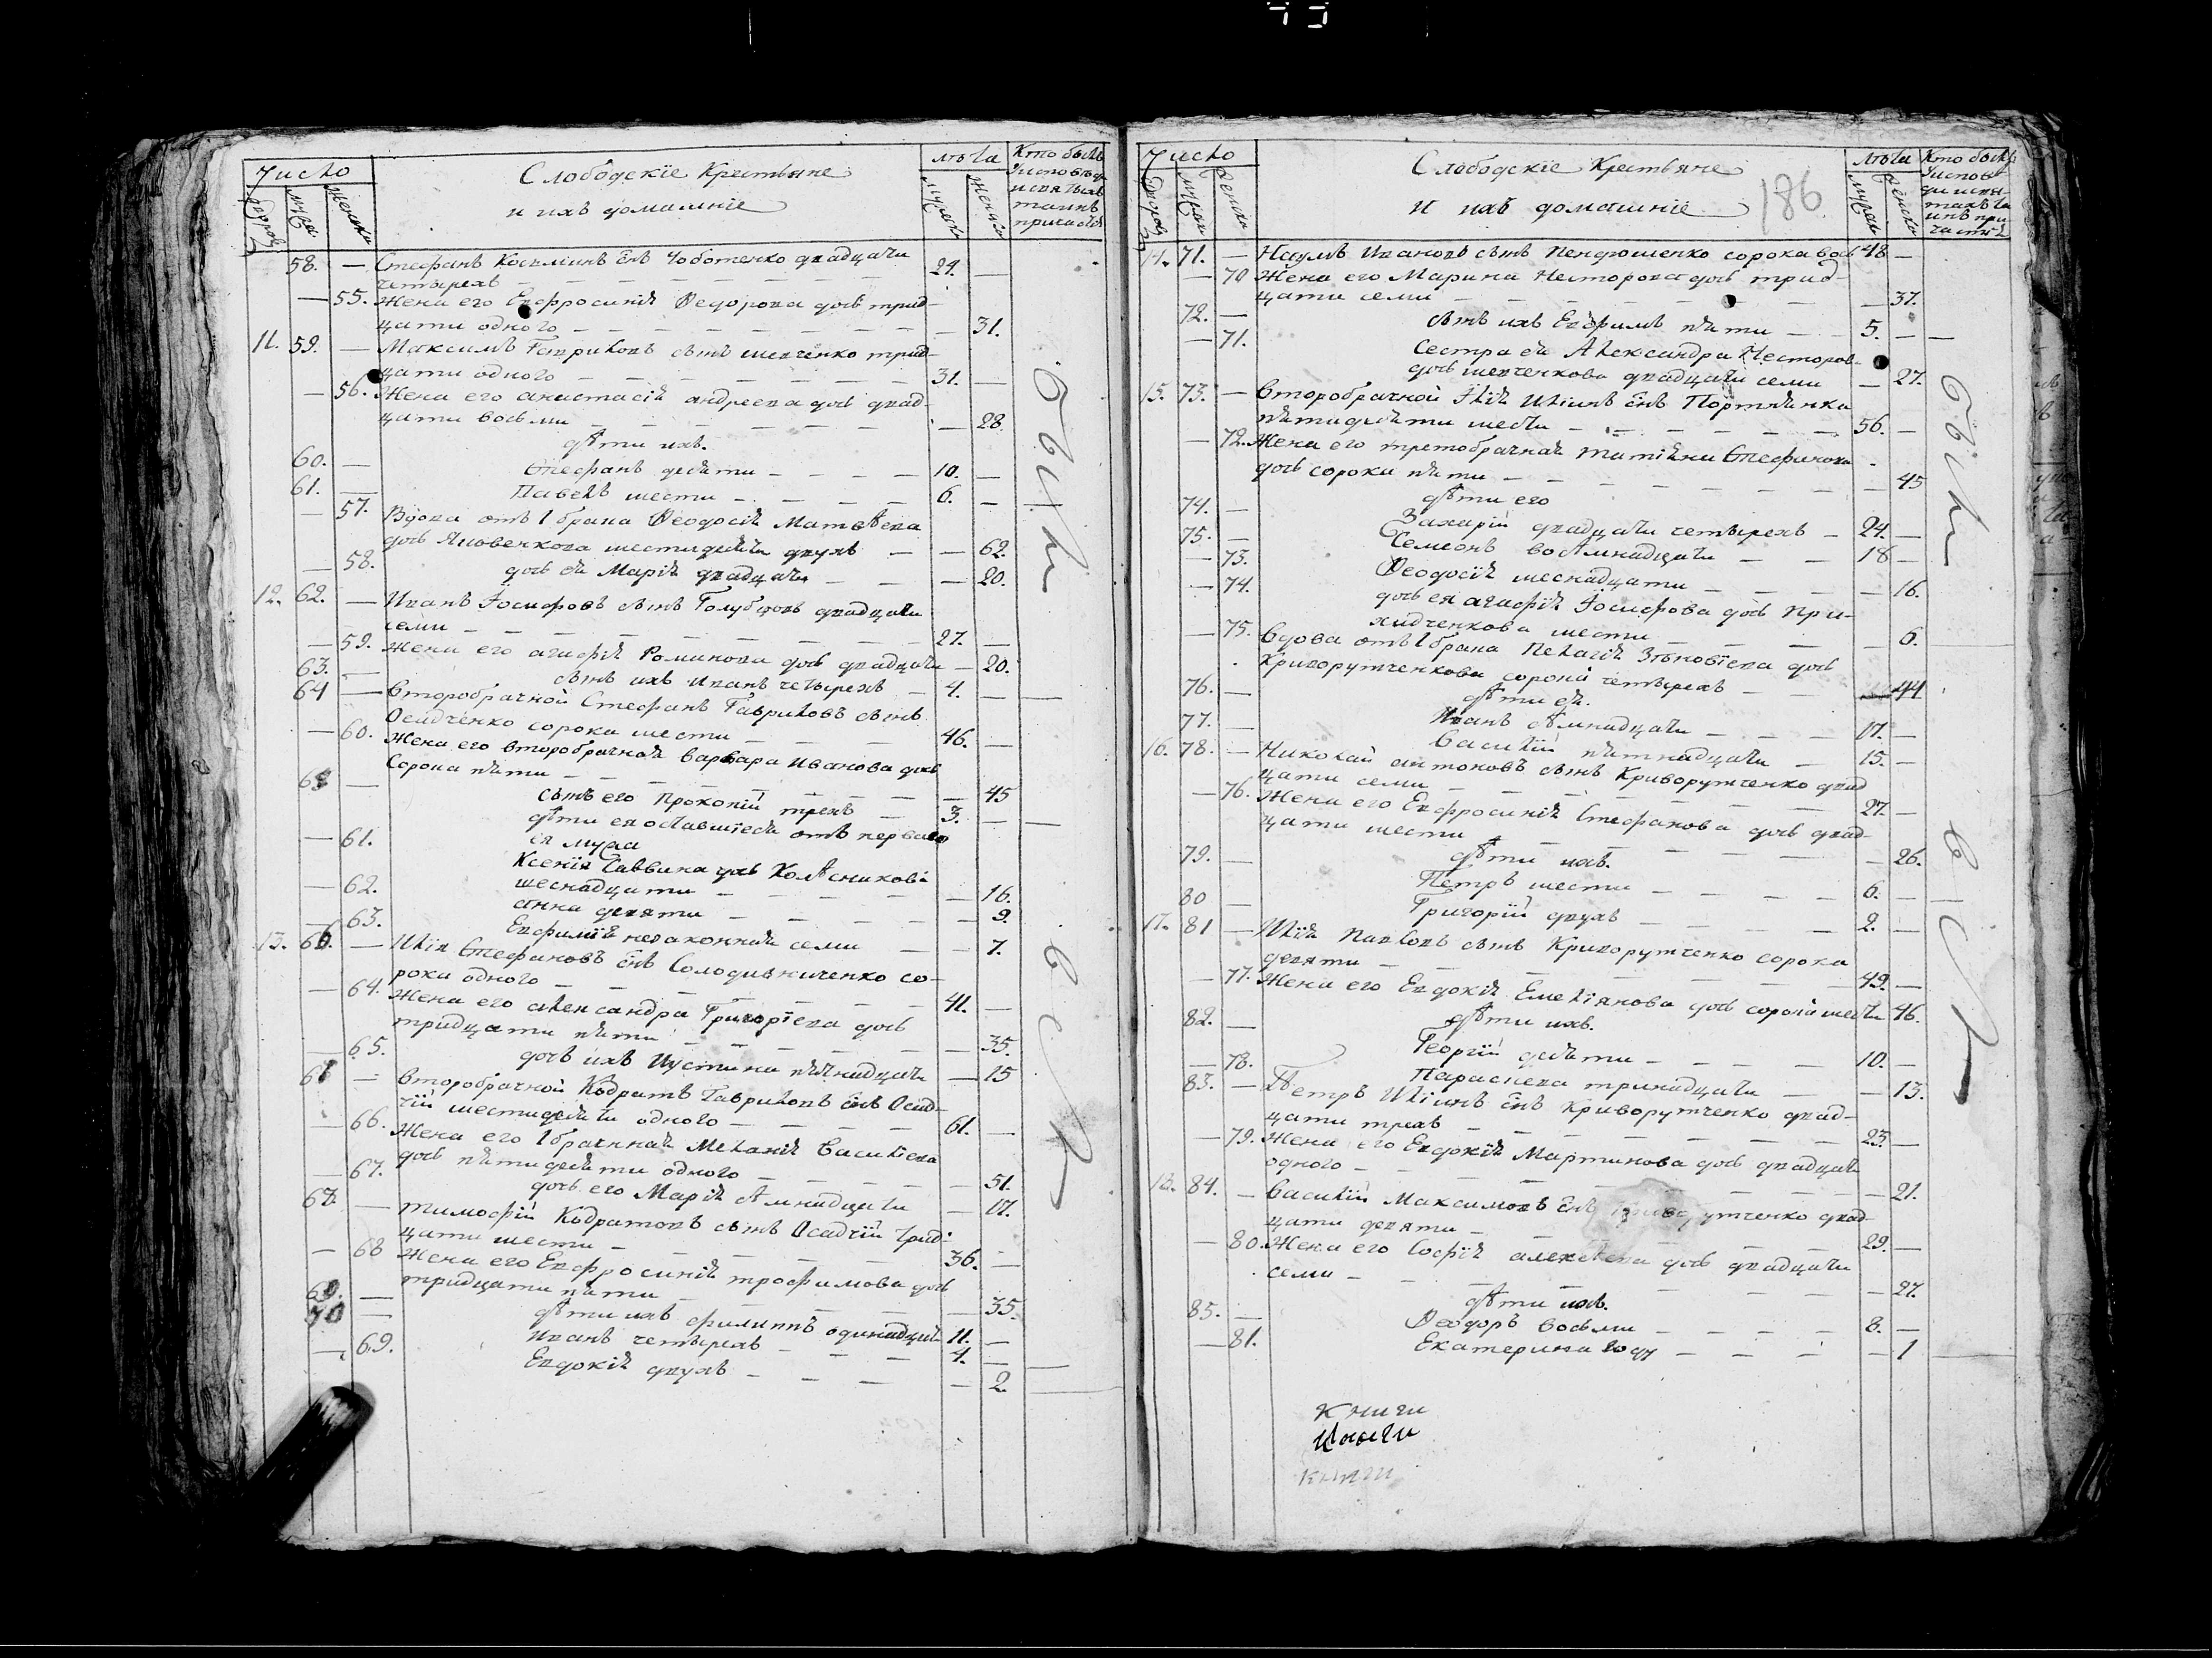 Число
Слободскіе Крестьяне
и ихъ домашніе
лѣта
Кто былъ
у исповѣди
и святыхъ
таинъ
причастія
дворовъ
мужеска
женска
мужеска
женска
58. — Стефанъ Космин сн҃ъ Чоботенко двадцати
четырехъ — 24. —
— 55. Жена его Евфросинія Ѳеодорова дочь трид-
цати одного — — 31.
11. 59. — Максимъ Гавриловъ сынъ Шевченко трид-
цати одного — 31. —
— 56. Жена его Анастасія Андреева дочь двад-
цати восьми — — 28.
дѣти ихъ.
60. — Стефанъ десяти — 10. —
61. — Павелъ шести — 6. —
— 57. Вдова отъ 1 брака Ѳеодосія Матѳѣева
дочь Яковенкова шестидесяти двухъ — — 62.
— 58. дочь ея Марія двадцати — — 20.
12. 62. — Иванъ Іосифовъ сынъ Голубцовъ двадцати
семи — 27. —
— 59. Жена его Агафія Романова дочь двадцати — 20.
63. — сынъ ихъ Иванъ четырехъ — 4. —
64 — Второбрачной Стефанъ Гавриловъ сынъ
Осадченко сорока шести — 46. —
— 60. Жена его второбрачная Варвара Иванова дочь
сорока пяти — — 45
65 — сынъ его Прокопій трехъ — 3. —
дѣти ея оставшіеся отъ перваго
ея мужа
— 61. Ксенія Саввина дочь Колѣсникова
шеснадцати — — 16.
— 62. Анна девяти — — 9.
— 63. Евфимія незаконная семи — — 7.
13. 66. — Илія Стефановъ сн҃ъ Солодивниченко со-
рока одного — 41. —
— 64. Жена его Александра Григоріева дочь
тридцати пяти — — 35.
— 65. дочь ихъ Иустина пятнадцати — 15
67 — Второбрачной Кодратъ Гавриловъ сн҃ъ Осад-
чій шестидесяти одного — 61. —
— 66. Жена его 1 брачная Меланія Василіева
дочь пятидесяти одного — — 51.
— 67. дочь его Марія сѣмнадцати — 17.
68. — Тимофій Кодратовъ сынъ Осадчій трид-
цати шести — 36. —
— 68 Жена его Евфросинія Трофимова дочь
тридцати пяти — — 35.
69. — дѣти ихъ Филиппъ одинадцати 11. —
70 — Иванъ четырехъ — 4. —
— 69. Евдокія двухъ — — 2.
были
всѣ
Число
Слободскіе Крестьяне
и ихъ домашніе
186
лѣта
Кто былъ
у исповѣ-
ди и свя-
тыхъ та
инъ при
частія
дворовъ
мужеска
женска
мужеска
женска
14. 71. — Наумъ Ивановъ сынъ Пендюшенко сорока вось 48 —
— 70 Жена его Марина Несторова дочь трид-
цати семи — — 37.
72. — сынъ ихъ Евфимъ пяти — 5. —
— 71. Сестра ея Александра Несторов-
дочь Шевченкова двадцати семи — 27.
15. 73. — Второбрачной Илія Иліинъ сн҃ъ Портянка
пятидесяти шести — 56. —
— 72. Жена его третобрачная Татіяна Стефанова
дочь сорока пяти — — 45
дѣти его
74. — Захарій двадцати четырехъ — 24. —
75. — Семеонъ восѣмнадцати — 18 —
— 73. Ѳеодосія шеснадцати — — 16.
— 74. дочь ея Агафія Іосифова дочь При-
хидченкова шести — — 6.
— 75. Вдова отъ 1 брака Пелагія Зѣновіева дочь
Криворутченкова сорока четырехъ — 44
дѣти ея.
76. — Иванъ сѣмнадцати — 17. —
77. — Василій пятнадцати — 15. —
16. 78. — Николай Антоновъ сынъ Криворутченко двад
цати семи — 27. —
— 76. Жена его Евфросинія Стефанова дочь двад-
цати шести — — 26.
дѣти ихъ.
79. — Петръ шести — 6. —
80 — Григорій двухъ — 2. —
17. 81 — Илія Павловъ сынъ Криворутченко сорока
девяти — 49. —
— 77. Жена его Евдокія Емеліянова дочь сорока шести 46.
дѣти ихъ.
82. — Георгій десяти — 10. —
— 78. Параскева тринадцати — — 13.
83. — Петръ Иліинъ сн҃ъ Криворутченко двад-
цати трехъ — 23. —
79. Жена его Евдокія Мартинова дочь двадцати
одного — — 21.
18. 84. — Василій Максимовъ сн҃ъ Криворутченко двад-
цати девяти — 29. —
— 80. Жена его Софія Алексѣева дочь двадцати
семи — — 27.
дѣти ихъ.
85. — Ѳеодоръ восьми — 8. —
— 81. Екатерина году — — 1
были
всѣ
Книги
Книги
книги